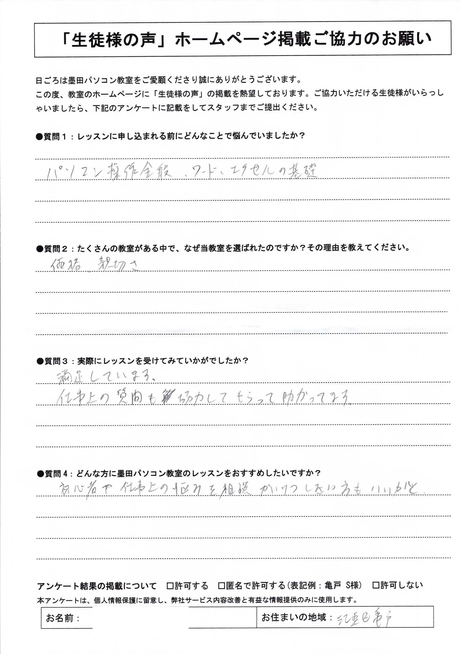 「生徒様の声」ホームページ掲載ご協力のお願い
日ごろは墨田パソコン教室をご愛顧くださり誠にありがとうございます。
この度、教室のホームページに「生徒様の声」の掲載を熱望しております。ご協力いただける生徒様がいらっし
ゃいましたら、下記のアンケートに記載をしてスタッフまでご提出ください。
●質問1:レッスンに申し込まれる前にどんなことで悩んでいましたか?
パソコン操作全般、ワード、エクセルの基礎
●質問2:たくさんの教室がある中で、なぜ当教室を選ばれたのですか?その理由を教えてください。
価格 親切さ
●質問3:実際にレッスンを受けてみていかがでしたか?
満足しています。
仕事上の質問も協力してもらって助かってます
●質問4:どんな方に墨田パソコン教室のレッスンをおすすめしたいですか?
初心者や仕事上の悩みを相談 かいけつしたい方もいいかと
アンケート結果の掲載について □許可する □匿名で許可する(表記例:亀戸 S様) □許可しない
本アンケートは、個人情報保護に留意し、弊社サービス内容改善と有益な情報提供のみに使用します。
お名前: お住まいの地域:江東区亀戸